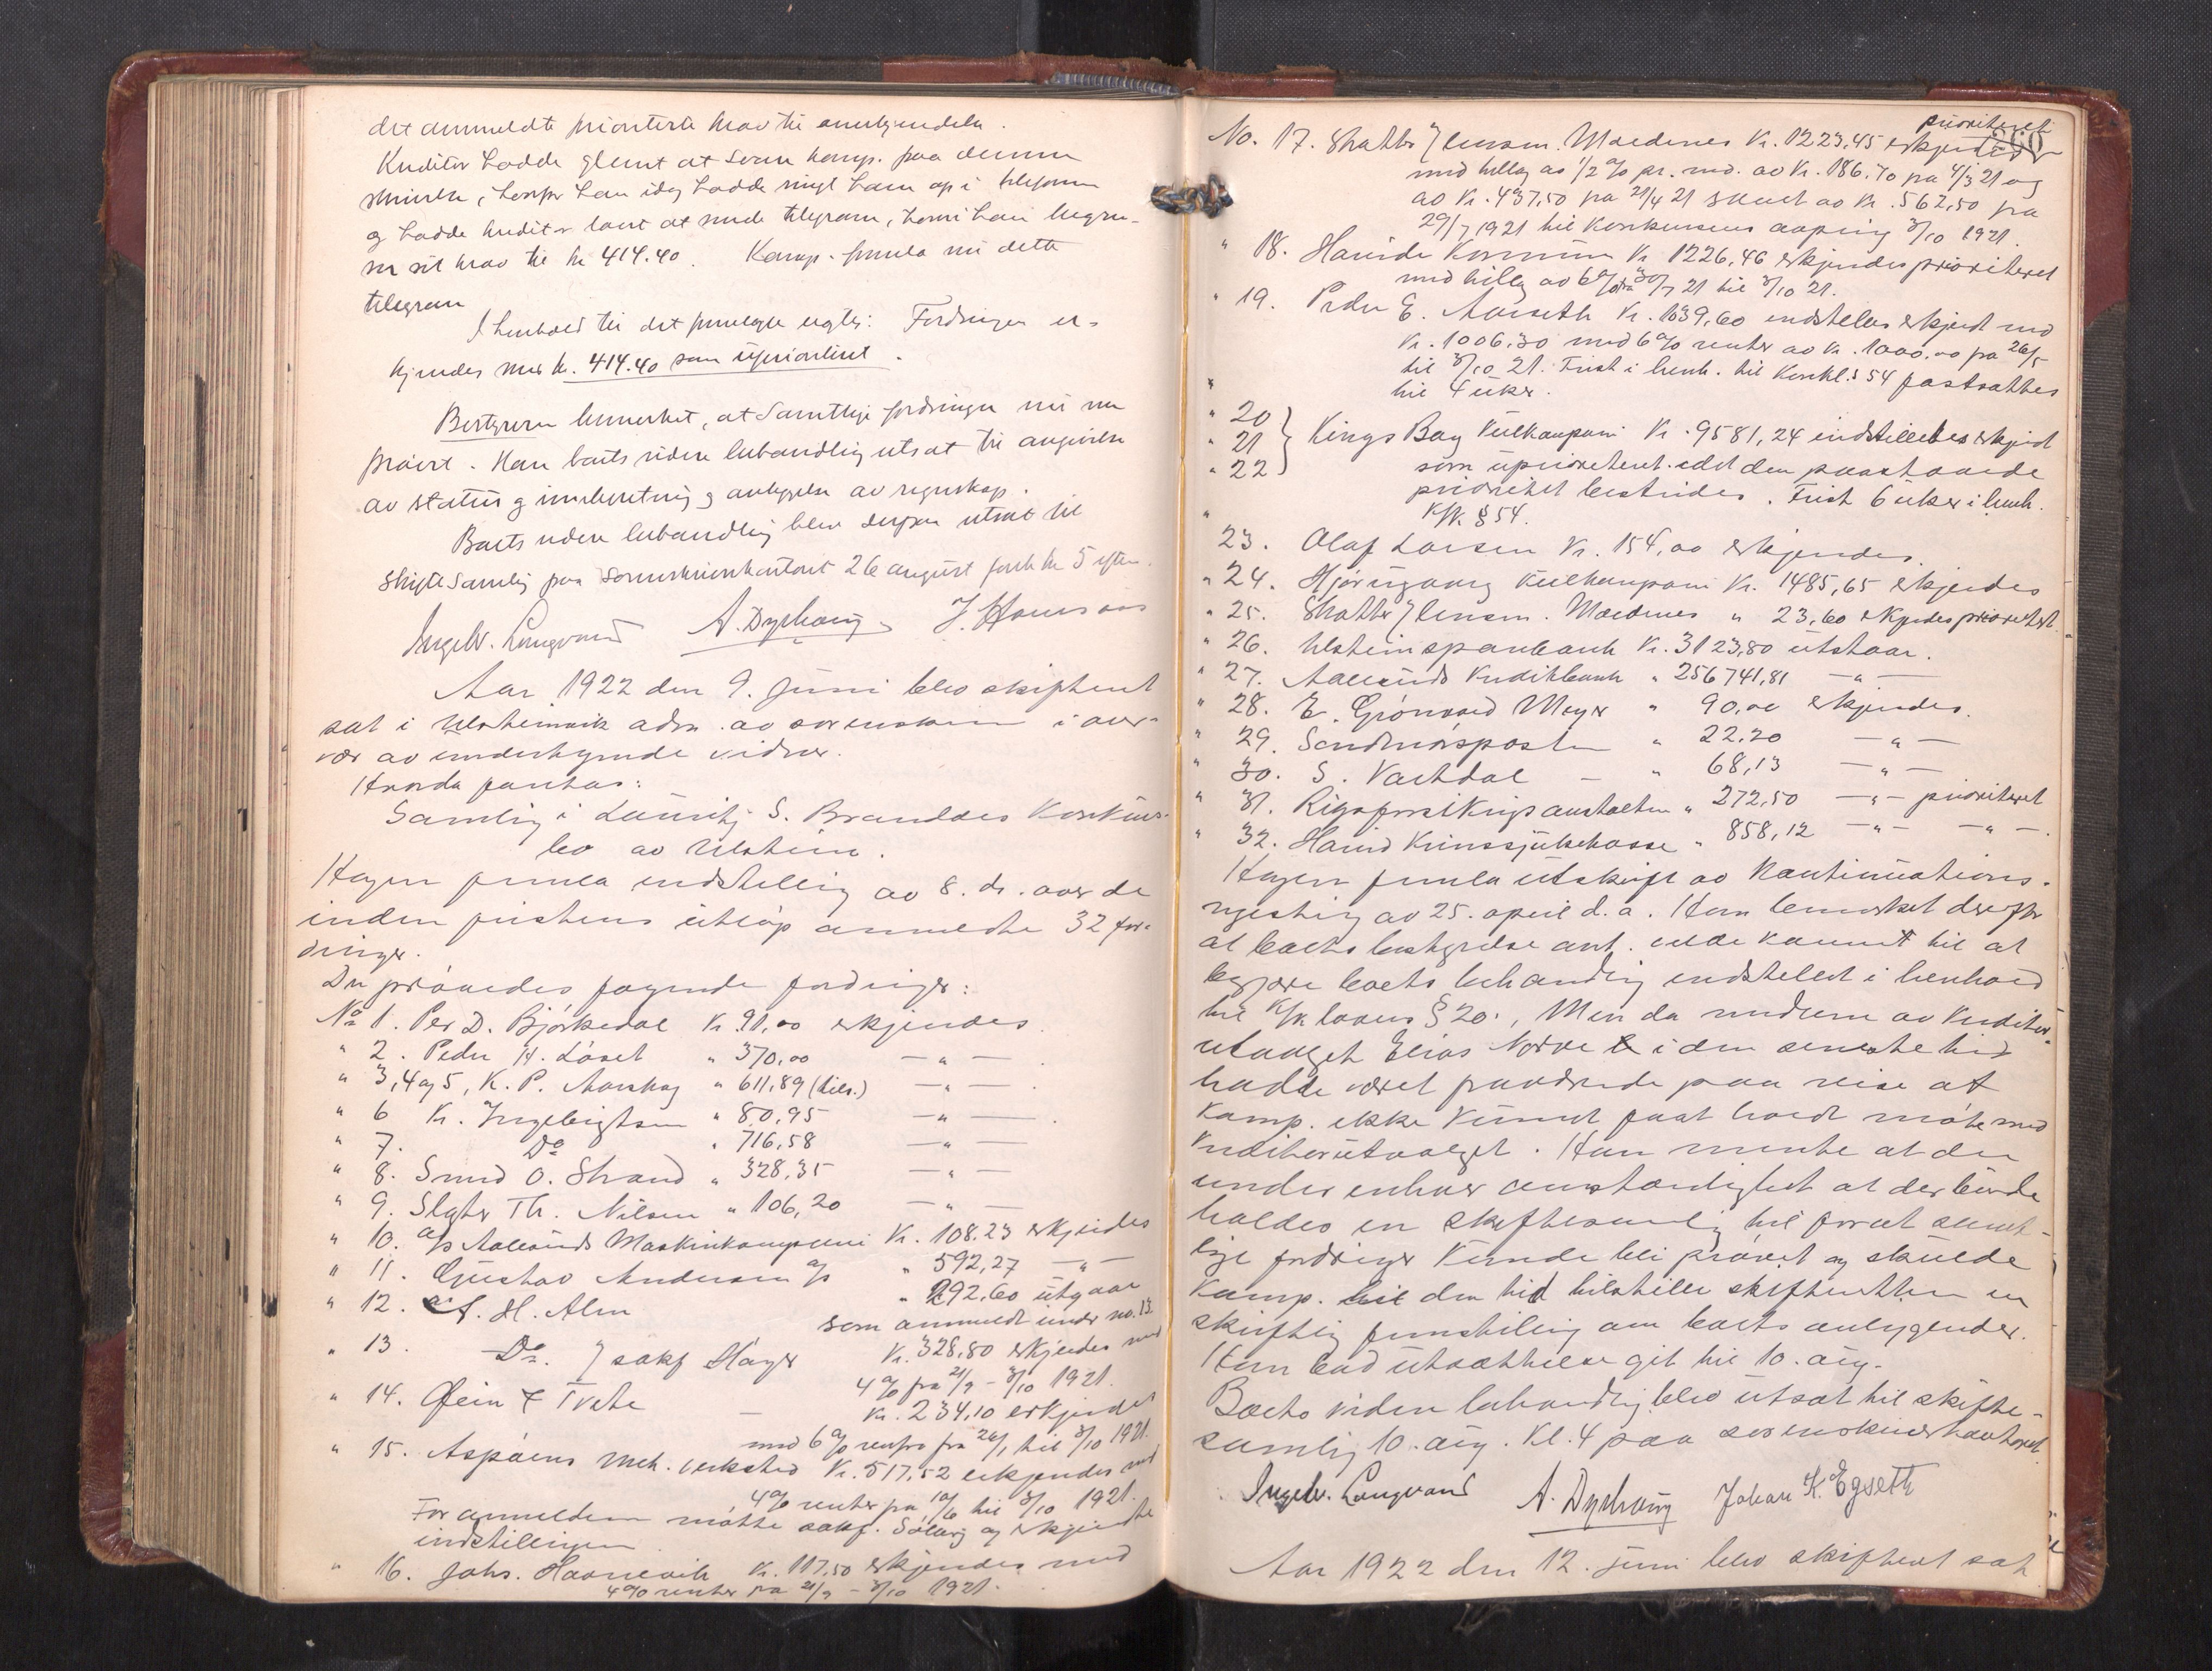 det anmeldte prioriterte krav til anerkjendelse.
Kreditor hadde glemt at svare komp. paa denne
skrivelse, hvorfor han idag hadde ringt ham op i telefonen
og hadde kreditor lovet at sende telegram, hvori han begræn-
ser sit krav til kr 414.40. Komp. fremla nu dette
telegram
I henhold til det fremlagte vedtages: Fordringen er-
kjendes med kr. 414.40 som uprioritert.
Bestyreren bemerket, at samtlige fordringer nu var
prøvet. Han bad boets videre behandling utsat til avgivelse
av status og indberetning og avleggelse av regnskap.
Boets videre behandling blev derpaa utsat til
skiftesamling paa sorenskriverkontoret 26 august førstk. kl 5 efterm.
Ingebr. Langvand A. Dyrhaug J. Hansson
Aar 1922 den 9. juni blev skifteret
sat i Ulsteinvik adm. av sorenskriveren i over-
vær av undertegnede vidner.
Hvorda foretas:
Samling i Lauritz S. Branddes Konkurs-
bo av Ulstein.
Hagen fremla indstilling av 8. ds. over de
inden fristens utløp anmeldte 32 for-
dringer.
Der prøvedes følgende fordringer:
No 1. Per D. Bjørkedal Kr. 91,00 erkjendes.
" 2. Peder H. Løset " 370,00 —"—.
" 3,4 og 5, K. P. Aarskog " 611,89 (tils.) —"—.
" 6 Kr. Ingebrigtsen " 80,95 —"—.
" 7. Do " 716,58 —"—
" 8. Smed O. Strand " 328,35 —"—
" 9. Slagter Th. Nilsen " 106,20 —"—
" 10. A/s Aalesunds Maskinkompani Kr. 108.23 erkjendes
" 11. Gustav Andersen A/s " 592,27 —"—
" 12. A. H. Alm " 292,60 utgaar
som anmeldt under no. 13.
" 13. Do. v/ sakf Høyer Kr. 328,80 erkjendes med
4% fra 21/9 - 3/10 1921.
" 14. Øien & Tvete — Kr. 234,10 erkjendes
med 6% renter fra 26/1 til 3/10 1921.
" 15. Aspøens mek. verksted Kr. 517.52 erkjendes med
4% renter fra 10/6 til 3/10 1921.
For anmelderen møtte sakf. Solberg og erkjendte
indstillingen
" 16. Johs. Havnevik Kr. 117,50 erkjendes med
4% renter fra 21/9 - 3/10 1921.
No. 17. Skatter v/ lensm. Moldenes Kr. 1223,45 erkjendes prioriteret
med tillæg av 1/2 % pr. md. av Kr. 186.70 fra 4/3 21 og
av Kr. 437,50 fra 21/4 21 samt av Kr. 562,50 fra
29/7 1921 til konkursens aapning 3/10 1921.
" 18. Hareide Kommune Kr. 1226,46 erkjendes prioriteret
med tillæg av 6% fra 30/7 21 til 3/10 21.
" 19. Peder E. Aarseth Kr. 1639,60 indstilles erkjendt med
Kr. 1006.30 med 6% renter av Kr. 1000.00 fra 26/5
til 3/10 21. Frist i henh. til Konkl. § 54 fastsattes
til 4 uker.
" 20
" 21
" 22
Kings Bay Kulkompani Kr. 9581,24 indstilledes erkjendt
som uprioriteret idet den paastaaede
prioritet bestrides. Frist 6 uker i henh.
K/K. § 54.
23. Olaf Larsen Kr. 154,00 erkjendes.
" 24. Hjørungavaag Kulkompani Kr. 1485,65 erkjendes
" 25. Skatter v/ lensm. Moldenes " 23,60 erkjendes prioriteret.
" 26. Ulstein sparebank Kr. 3123,80 utstaar.
" 27. Aalesunds Kreditbank " 256741,81 —"—
" 28. E. Grønvold Meyer " 90,00 erkjendes.
" 29. Søndmørsposten " 22.20 —"—
" 30. S. Vartdal — " 68,13 —"—
" 31. Riksforsikringsanstalten " 272,50 —"— prioriteret
" 32. Hareid Kredssykekasse " 858,12 —"— —"—.
Hagen fremla utskrift av Kontinuations-
registring av 25. april d. a. Han bemerket derefter
at boets bestyrelse ant. vilde kommet til at
begjære boets behandling indstillet i henhold
til K/K lovens § 20., Men da medlem av kreditor-
utvalget Elias Norve i den seneste tid
hadde været fraværende paa reise at
komp. ikke kunnet faat holdt møte med
kreditorutvalget. Han mente at der
under enhver omstændighet at der burde
holdes en skiftesamling til foråt samt-
lige fordringer kunde bli prøvet og skulde
Komp. til den tid tilstille skifteretten en
skriftlig fremstilling om boets anliggender.
Han bad utsættelse git til 10. aug.
Boets videre behandling blev utsat til skifte-
samling 10. aug. Kl. 4 paa sorenskriverkontoret.
Ingebr. Langvand A. Dyrhaug Johan K. Egseth
Aar 1922 den 12. juni blev skifteret sat